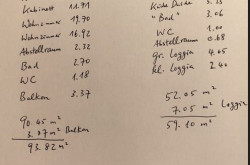 Kabinett 11.91
Wohnzimmer 19.70
Wohnzimmer 16.92
Abstellraum 2.32
Bad 2.70
WC 1.18
Balkon 3.37
90.45 m²
3.37 m² Balkon
93.82 m²
"Bad" 3.06
WC 1.00
Abstellraum 0.68
gr. Loggia 4.05
kl. Loggia 2.40
52.05 m²
7.05 m² Loggia
59.10 m²